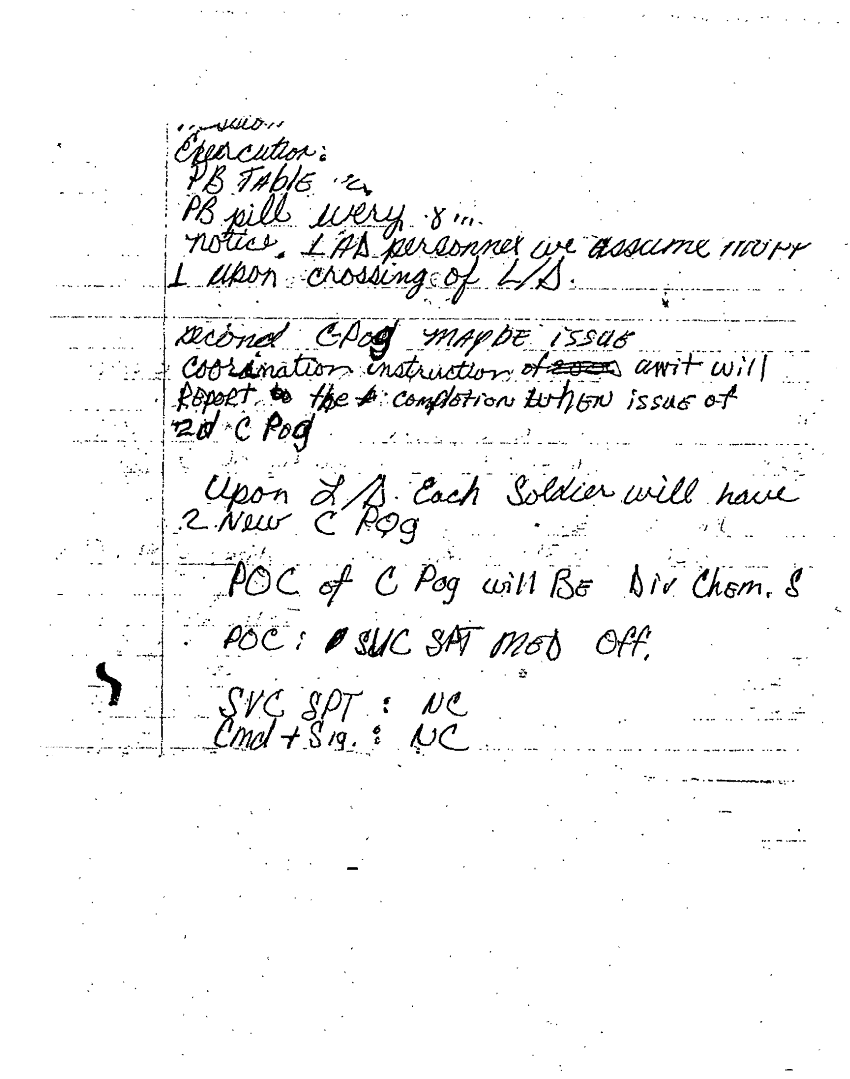 Execution:
PB TABLE
PB pill every 8
notice. 1 AD personnel we assume MOPP
1 upon crossing of L/D.
second CPog MAYBE ISSUE
coordination instruction of unit will
REPORT to the completion WHEN ISSUE of
2d C Pog
Upon L/D. Each Soldier will have
2 New C POg
POC of C Pog will BE Div Chem. S
POC: SVC SPT MED Off.
SVC SPT: NC
Cmd + Sig.: NC